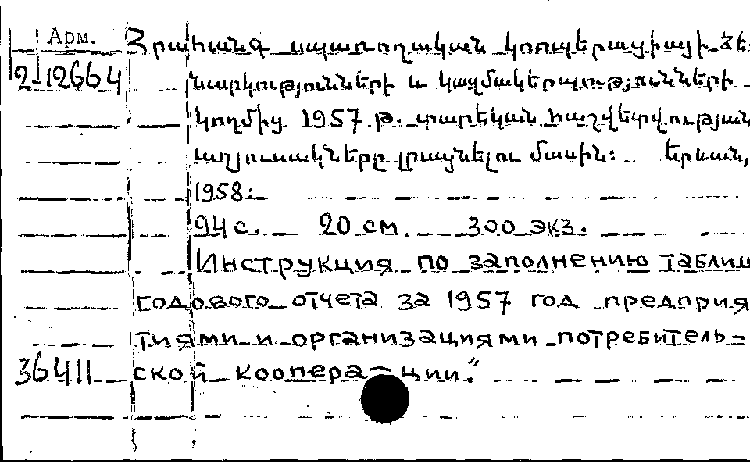 Арм.
2-12664
Հրահանգ սպառողական կոոպերացիայի ձեռ-
նարկությունների և կազմակերպությունների
կողմից 1957 թ. տարեկան հաշվետվության
աղյուսակները լրացնելու մասին: Երևան,
1958:
94 с. 20 см. 300 экз.
Инструкция по заполнению таблиц
годового отчета за 1957 год предприя
тиями и организациями потребитель-
36411 ской кооперации."